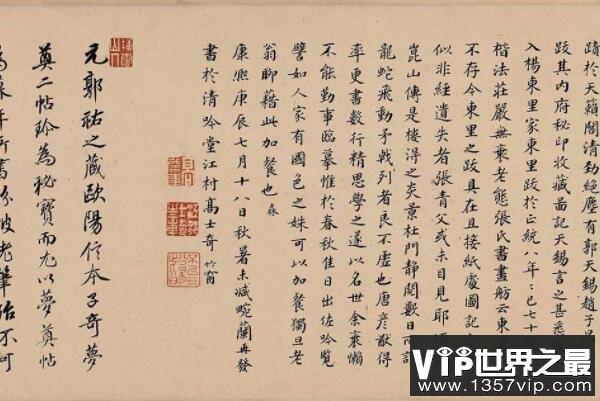 蹟於天籟閣清勁絕塵有郭天錫趙子
跋其內府秘印收藏圖記天錫言之甚悉
入楊東里家東里跋於正統八年已七十
楷法莊嚴無衰老態張氏書畫舫云東
不存今東里之跋具在且接紙處圖記
似非經遺失者張青父或未目見耶
崑山傳是樓得之炎景杜門靜閱數日
龍蛇飛動矛戟列者良不虛也唐彥猷得
率更書數行精思學之遂以名世余衰懶
不能勤事臨摹惟於春秋佳日出佐吟覽
譬如人家有國色之姝可以加餐獨旦老
翁聊藉此加餐也
康熙庚辰七月十八日秋暑未減畹蘭再發
書於清吟堂江村高士奇
竹窗
元郭祐之藏歐陽信本子奇夢
奠二帖珍為秘寶而尤以夢奠帖
VIP世界之最
www.1357vip.com